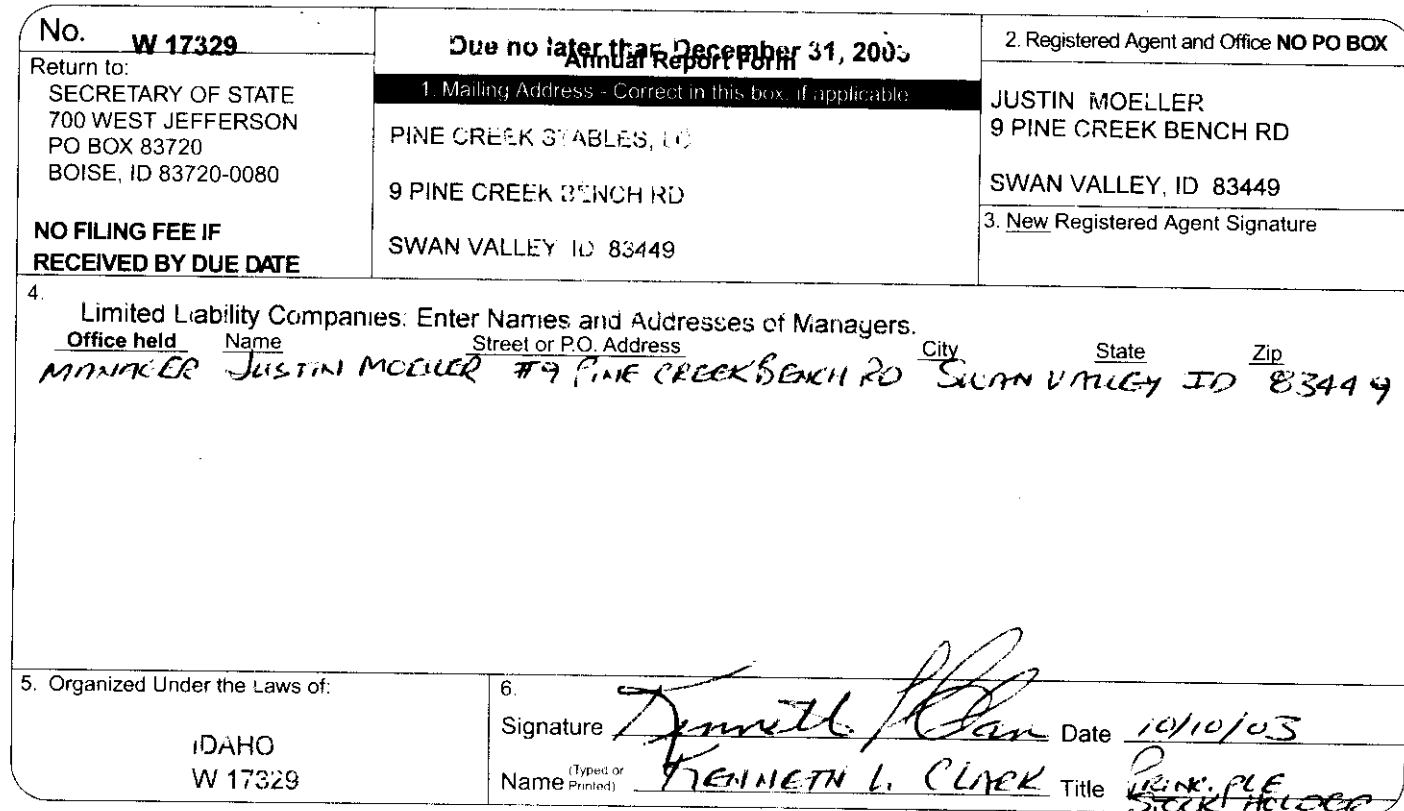 No. W 17329
Return to:
SECRETARY OF STATE
700 WEST JEFFERSON
PO BOX 83720
BOISE, ID 83720-0080
NO FILING FEE IF
RECEIVED BY DUE DATE
Due no later than December 31, 2003
Annual Report Form
1. Mailing Address - Correct in this box, if applicable
PINE CREEK STABLES, LC
9 PINE CREEK BENCH RD
SWAN VALLEY ID 83449
2. Registered Agent and Office NO PO BOX
JUSTIN MOELLER
9 PINE CREEK BENCH RD
SWAN VALLEY, ID 83449
3. New Registered Agent Signature
4.
Limited Liability Companies: Enter Names and Addresses of Managers.
Office held Name Street or P.O. Address City State Zip
MANAGER JUSTIN MOELLER #9 PINE CREEK BENCH RD SWAN VALLEY ID 83449
5. Organized Under the Laws of:
IDAHO
W 17329
6.
Signature Kenneth L Clark Date 10/10/03
Name (Typed or Printed) KENNETH L. CLARK Title PRINCIPLE
STOCK HOLDER